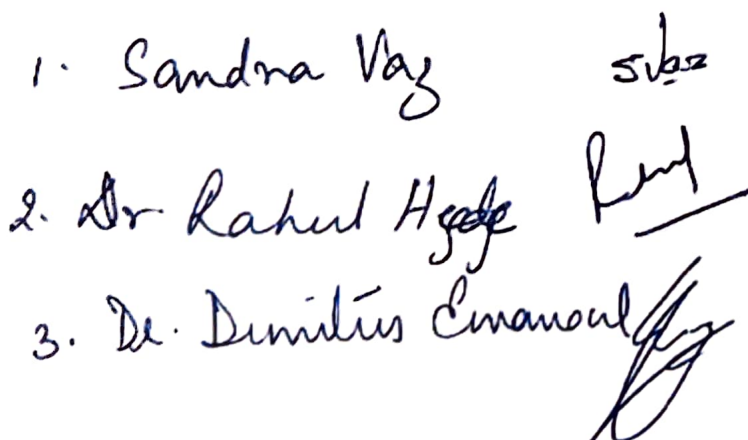 1. Sandra Vaz svaz
2. Dr Rahul Hegde
3. Dr. Dimitris Emanoul